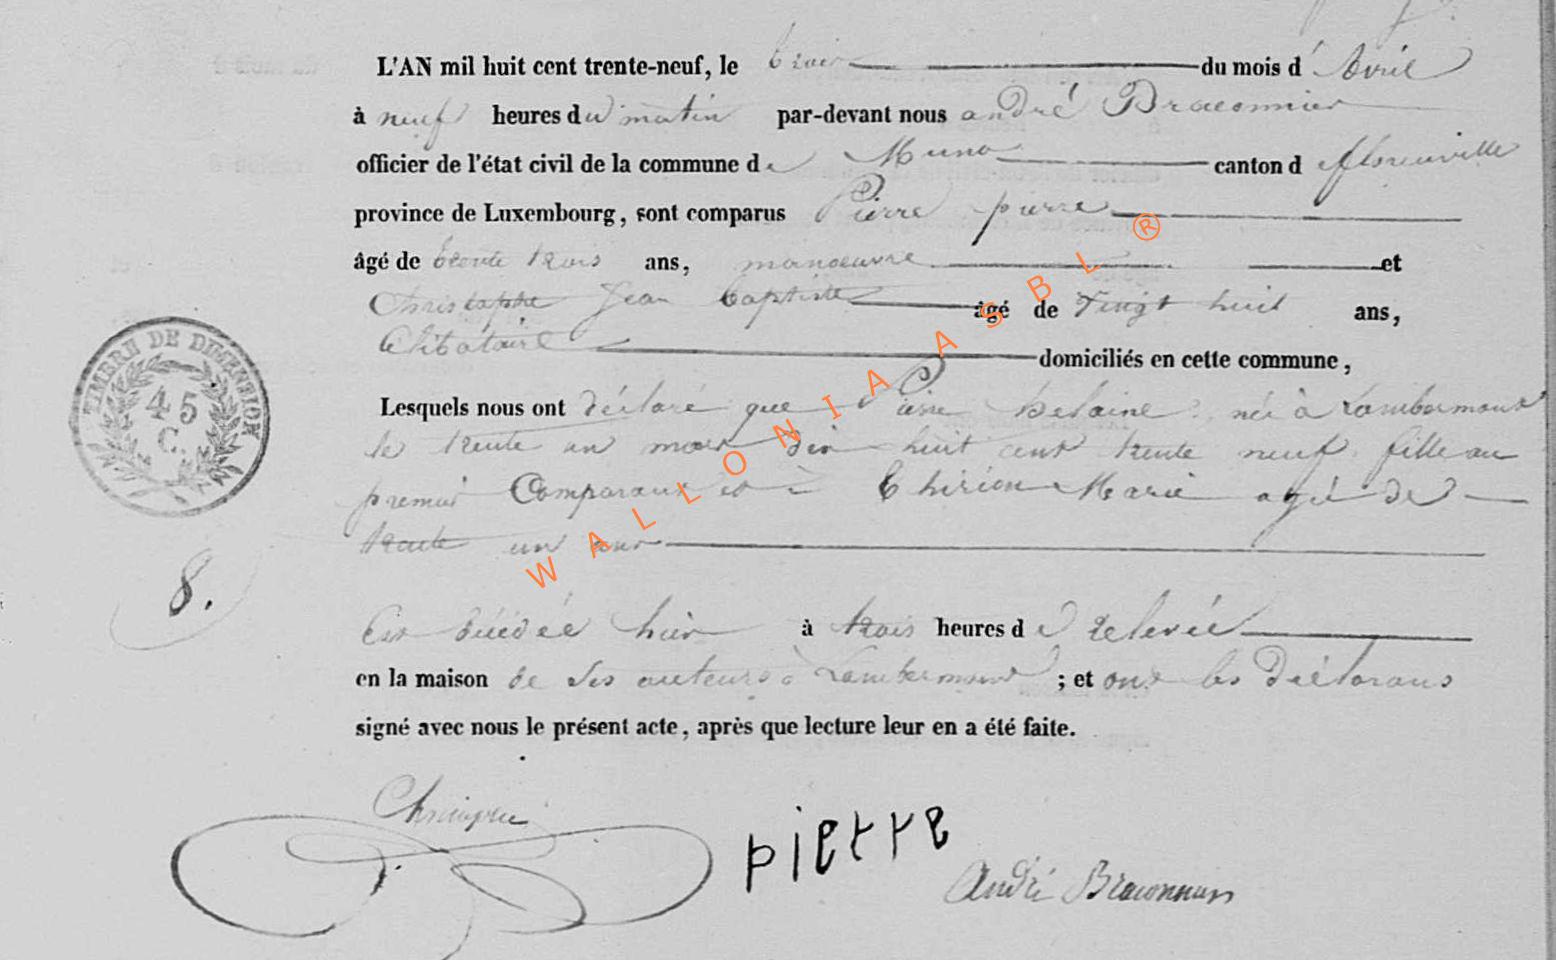 L'AN mil huit cent trente-neuf, le trois du mois d'Avril
à neuf heures du matin par-devant nous andré Braconnier
officier de l'état civil de la commune de Muno canton d fflorenville
province de Luxembourg, sont comparus Pierre pierre
âgé de trente trois ans, manoeuvre et
Christophe Jean Baptiste âgé de vingt huit ans,
Célibataire domiciliés en cette commune,
Lesquels nous ont déclaré que Pierre helaine née à Lambermont
le trente un mars dix huit cent trente neuf fille au
premier Comparant et à Thirion Marie agée de
trente un ans
Est décédée hier à trois heures de relevée
en la maison de ses auteurs à Lambermont ; et ont les Déclarans
signé avec nous le présent acte, après que lecture leur en a été faite.
TIMBRE DE DIMENSION
45
C.
8.
pierre
André Braconnier
WALLONIA ASBL ®